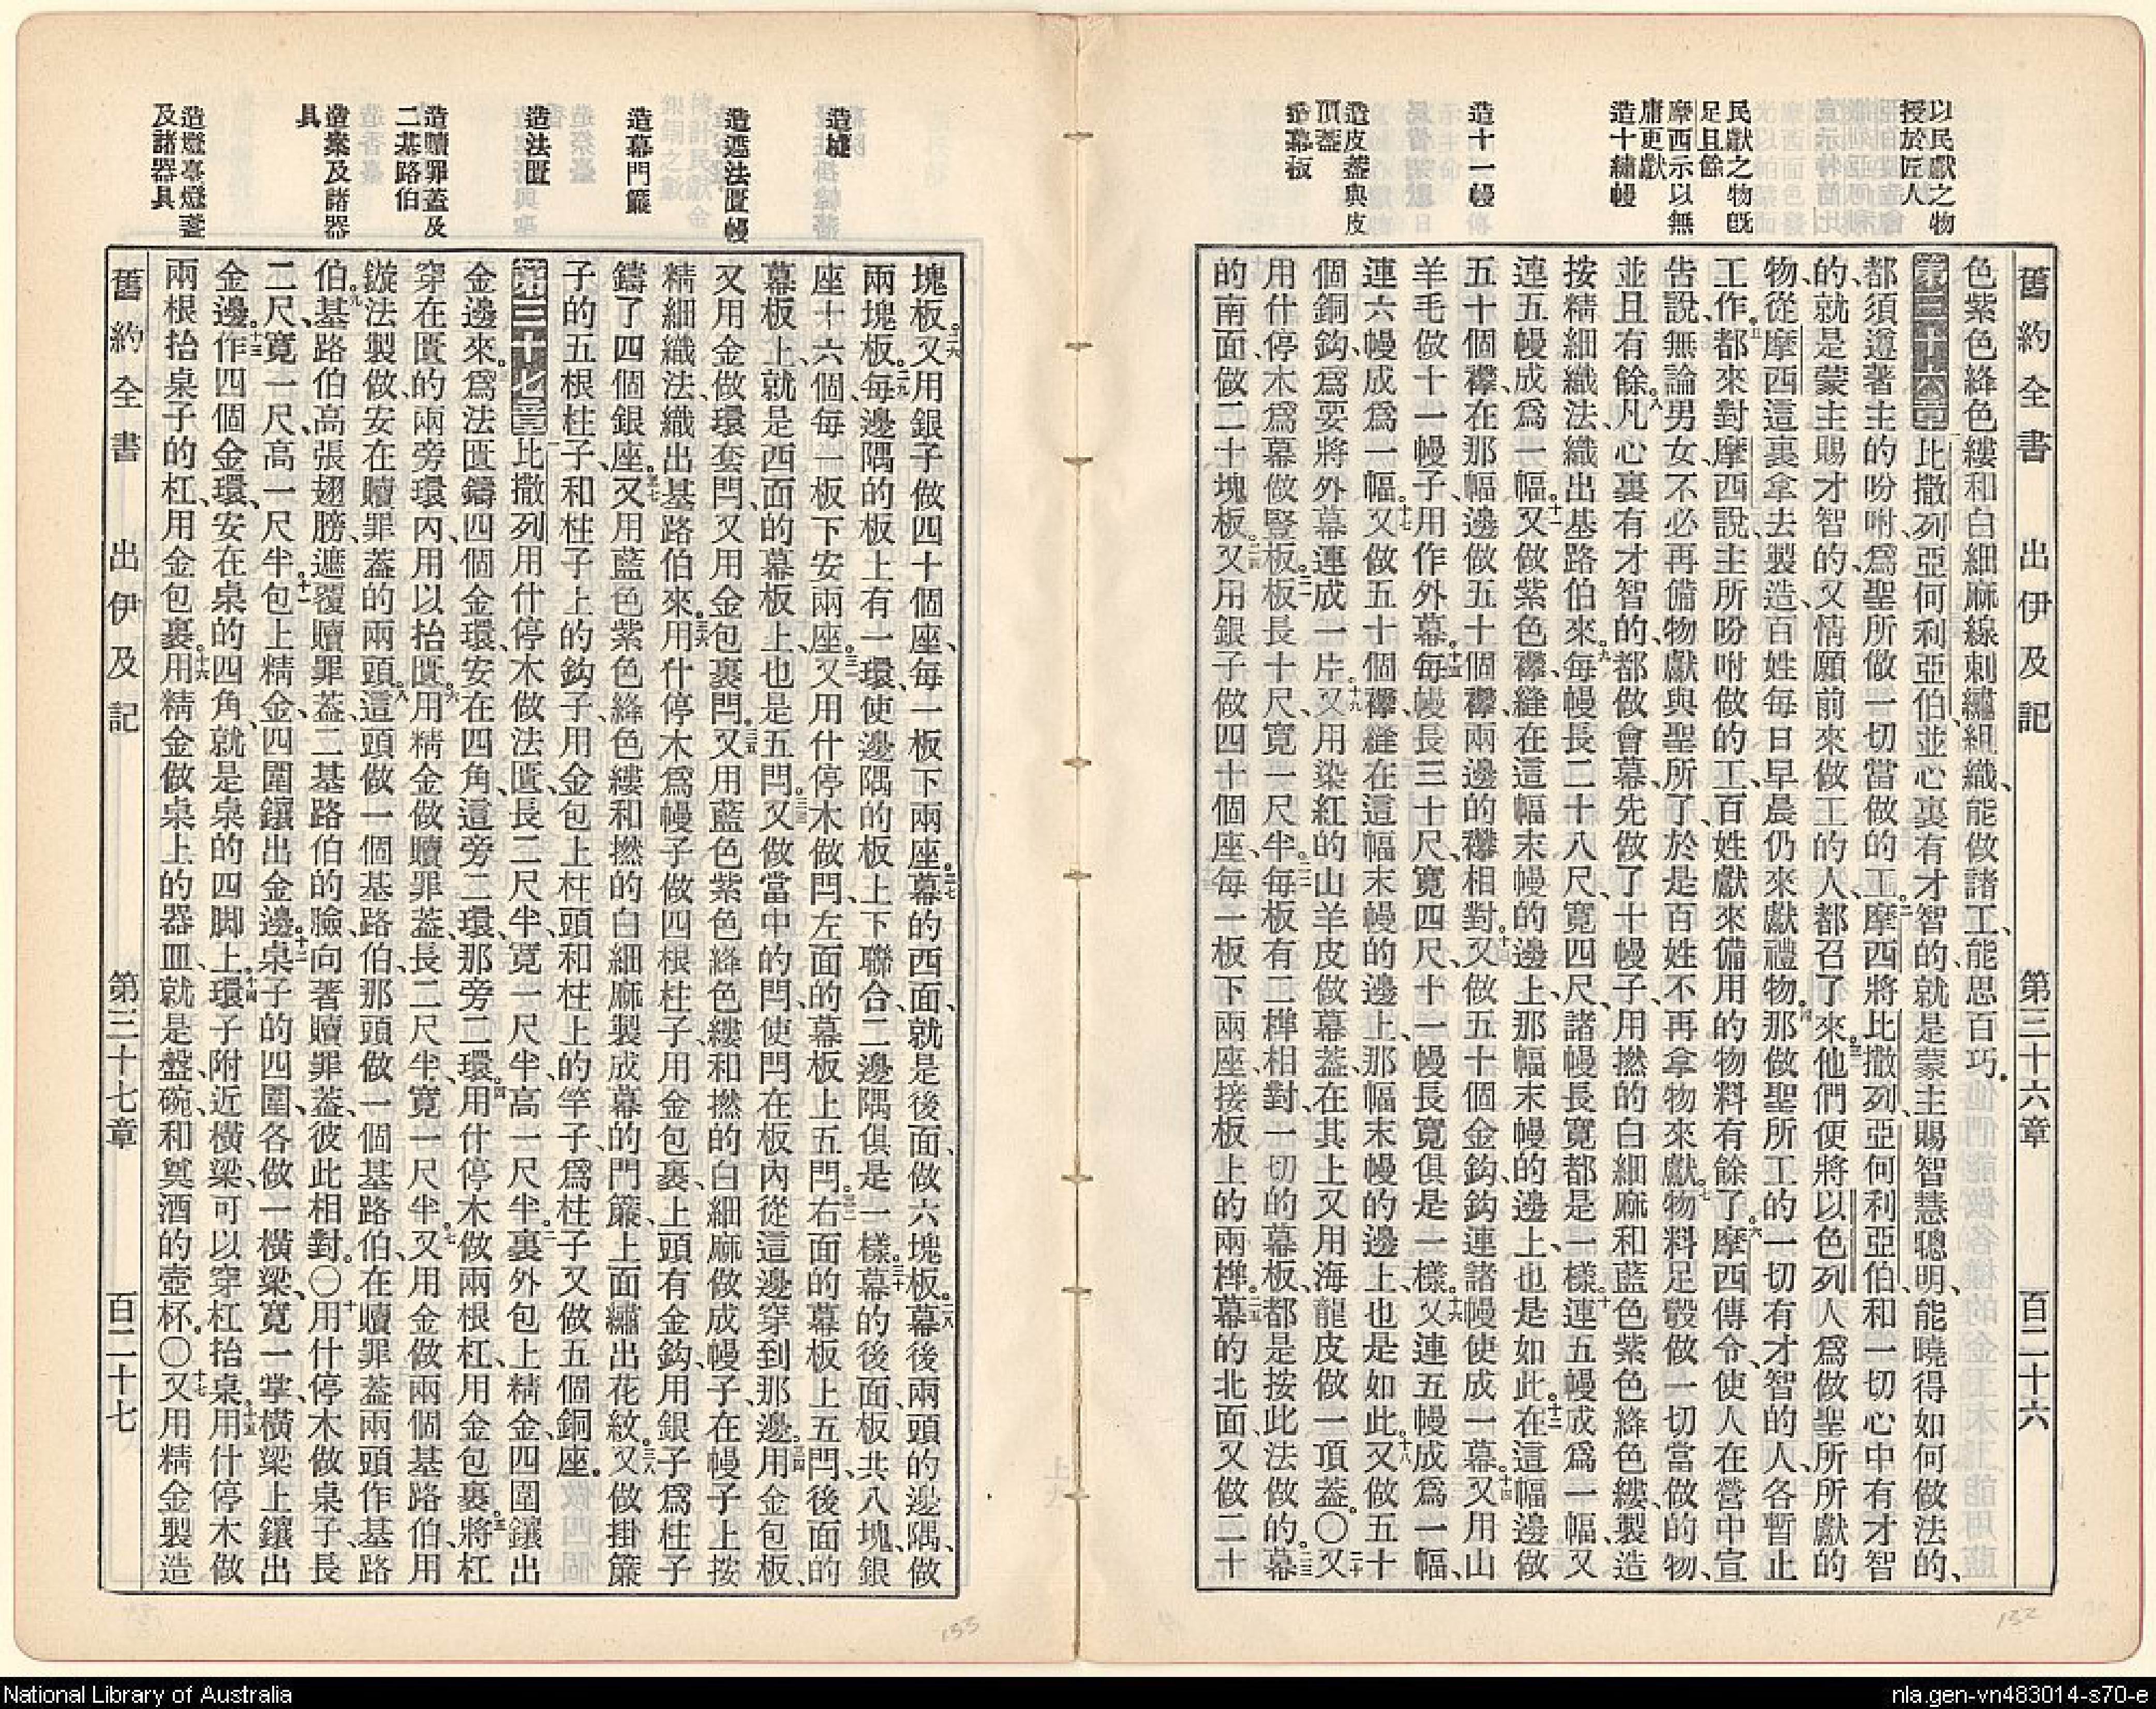 以民獻之物
授於匠人
民獻之物旣
足且餘
摩西示以無
庸更獻
造十繡幔
造十一幔
造皮蓋與皮
頂蓋
造幕板
舊約全書 出伊及記 第三十六章 百二十六
色紫色絳色縷和白細麻線刺繡、組織、能做諸工、能思百巧。
第三十六章 一比撒列亞何利亞伯、並心裏有才智的、就是蒙主賜智慧聰明、能曉得如何做法的、
都須遵著主的吩咐、爲聖所做一切當做的工。二摩西將比撒列、亞何利亞伯和一切心中有才智
的、就是蒙主賜才智的、又情願前來做工的人、都召了來。三他們便將以色列人爲做聖所所獻的
物、從摩西這裏拿去製造、百姓每日早晨仍來獻禮物。四那做聖所工的一切有才智的人、各暫止
工作。五都來對摩西說、主所吩咐做的工、百姓獻來備用的物料有餘了。六摩西傳令、使人在營中宣
告說、無論男女、不必再備物獻與聖所了、於是百姓不再拿物來獻。七物料足彀做一切當做的物、
並且有餘。八凡心裏有才智的、都做會幕、先做了十幔子、用撚的白細麻和藍色紫色絳色縷製造、
按精細織法、織出基路伯來。九每幔長二十八尺、寬四尺、諸幔長寬都是一樣。十連五幔成爲一幅、又
連五幔成爲一幅。十一又做紫色襻縫在這幅末幔的邊上、那幅末幔的邊上、也是如此。十二在這幅邊做
五十個襻、在那幅邊做五十個襻、兩邊的襻相對。十三又做五十個金鈎、鈎連諸幔使成一幕。十四又用山
羊毛做十一幔子、用作外幕。十五每幔長三十尺、寬四尺、十一幔長寬俱是一樣。十六又連五幔成爲一幅、
連六幔成爲一幅。十七又做五十個襻縫在這幅末幔的邊上、那幅末幔的邊上、也是如此。十八又做五十
個銅鈎、爲要將外幕連成一片。十九又用染紅的山羊皮做幕蓋、在其上又用海龍皮做一頂蓋。〇二十又
用什停木爲幕做豎板。二一板長十尺、寬一尺半。二二每板有二榫相對、一切的幕板、都是按此法做的。二三幕
的南面、做二十塊板。二四又用銀子做四十個座、每一板下兩座、接板上的兩榫。二五幕的北面、又做二十
造墟
造遮法匱幔
造幕門簾
造法匱
造贖罪蓋及
二基路伯
造案及諸器
具
造燈臺燈盞
及諸器具
塊板。二六又用銀子做四十個座、每一板下兩座。二七幕的西面、就是後面、做六塊板。二八幕後兩頭的邊隅、做
兩塊板。二九每邊隅的板上有一環、使邊隅的板上下聯合、二邊隅俱是一樣。三十幕的後面、板共八塊、銀
座十六個、每一板下安兩座。三一又用什停木做閂、左面的幕板上五閂。三二右面的幕板上五閂、後面的
幕板上、就是西面的幕板上、也是五閂。三三又做當中的閂、使閂在板內從這邊穿到那邊。三四用金包板、
又用金做環套閂、又用金包裹閂。三五又用藍色紫色絳色縷和撚的白細麻做成幔子、在幔子上按
精細織法、織出基路伯來。三六用什停木爲幔子做四根柱子、用金包裹、上頭有金鈎、用銀子爲柱子
鑄了四個銀座。三七又用藍色紫色絳色縷和撚的白細麻製成幕的門簾、上面繡出花紋。三八又做掛簾
子的五根柱子、和柱子上的鈎子、用金包上柱頭和柱上的竿子、爲柱子又做五個銅座。
第三十七章 一比撒列用什停木做法匱、長二尺半、寬一尺半、高一尺半。二裏外包上精金、四圍鑲出
金邊來。三爲法匱鑄四個金環、安在四角、這旁二環、那旁二環。四用什停木做兩根杠、用金包裹。五將杠
穿在匱的兩旁環內、用以抬匱。六用精金做贖罪蓋、長二尺半、寬一尺半。七又用金做兩個基路伯、用
鏇法製做、安在贖罪蓋的兩頭。八這頭做一個基路伯、那頭做一個基路伯、在贖罪蓋兩頭作基路
伯。九基路伯高張翅膀、遮覆贖罪蓋、二基路伯的臉向著贖罪蓋、彼此相對。〇十用什停木做桌子、長
二尺、寬一尺、高一尺半。十一包上精金、四圍鑲出金邊。十二桌子的四圍、各做一橫梁、寬一掌、橫梁上鑲出
金邊。十三作四個金環、安在桌的四角、就是桌的四脚上。十四環子附近橫梁、可以穿杠抬桌。十五用什停木做
兩根抬桌子的杠、用金包裹。十六用精金做桌上的器皿、就是盤、碗、和奠酒的壺杯。〇十七又用精金製造
舊約全書 出伊及記 第三十七章 百二十七
132
133
National Library of Australia
nla.gen-vn483014-s70-e